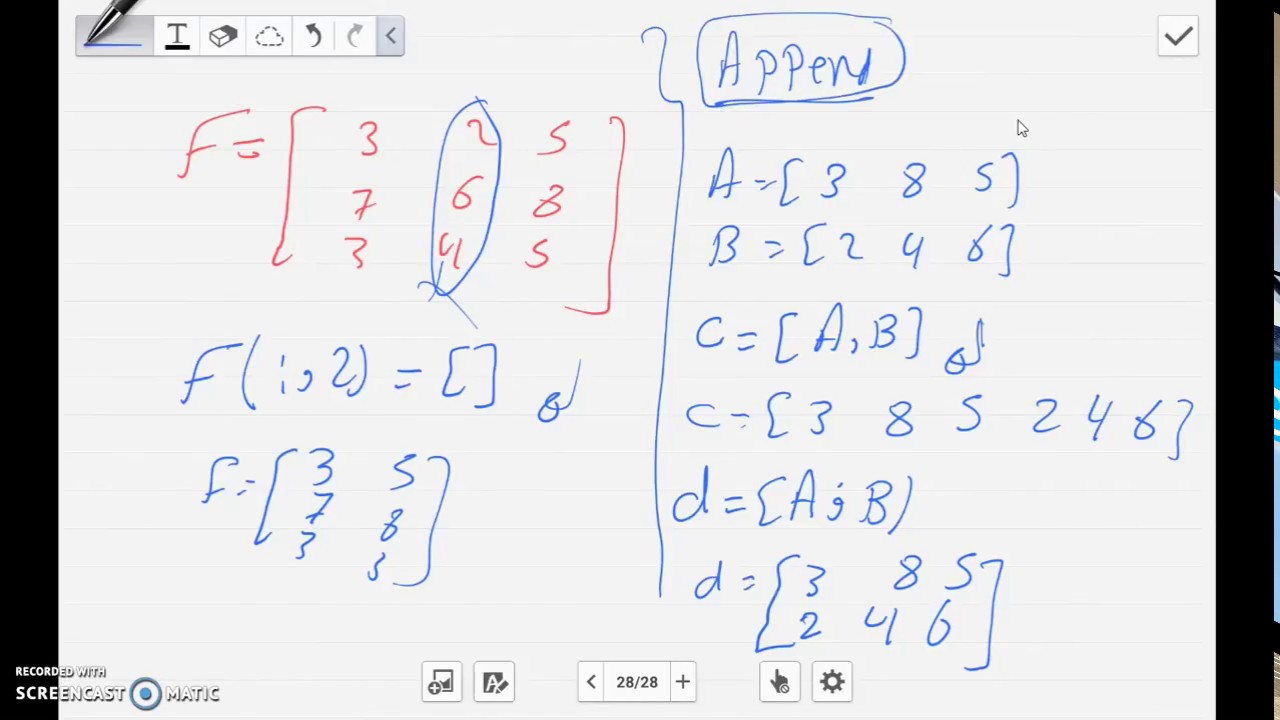 T
F = [ 3 2 5
7 6 8
3 4 5 ]
F(:,2) = []
F = [ 3 5
7 8
3 3 ]
Append
A = [ 3 8 5 ]
B = [ 2 4 6 ]
C = [ A, B ]
C = [ 3 8 5 2 4 6 ]
d = [ A ; B )
d = [ 3 8 5
2 4 6 ]
RECORDED WITH
SCREENCAST MATIC
28/28